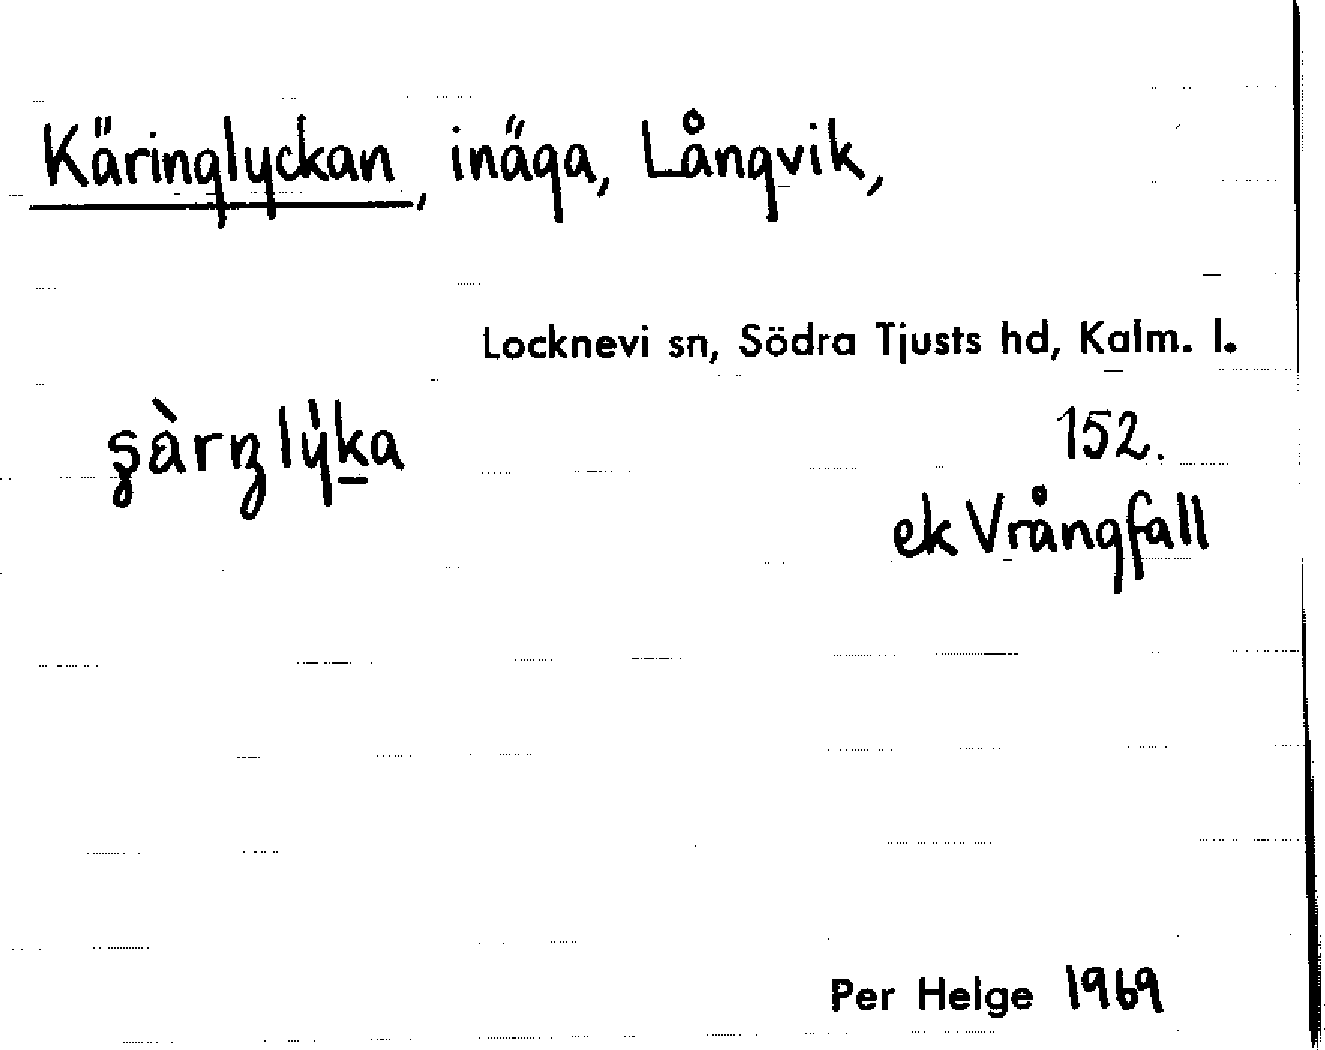 Käringlyckan, inäga, Långvik,
Locknevi sn, Södra Tjusts hd, Kalm. l.
152.
ek Vrångfall
Per Helge 1969